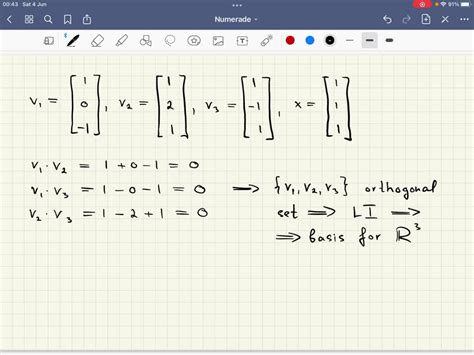 00:43 Sat 4 Jun
91%
Numerade
v₁ = [1 0 -1], v₂ = [1 2 1], v₃ = [1 -1 1], x = [1 1 1]
v₁ · v₂ = 1 + 0 - 1 = 0
v₁ · v₃ = 1 - 0 - 1 = 0 → {v₁, v₂, v₃} orthogonal
v₂ · v₃ = 1 - 2 + 1 = 0 set ⇒ LI →
⇒ basis for ℝ³